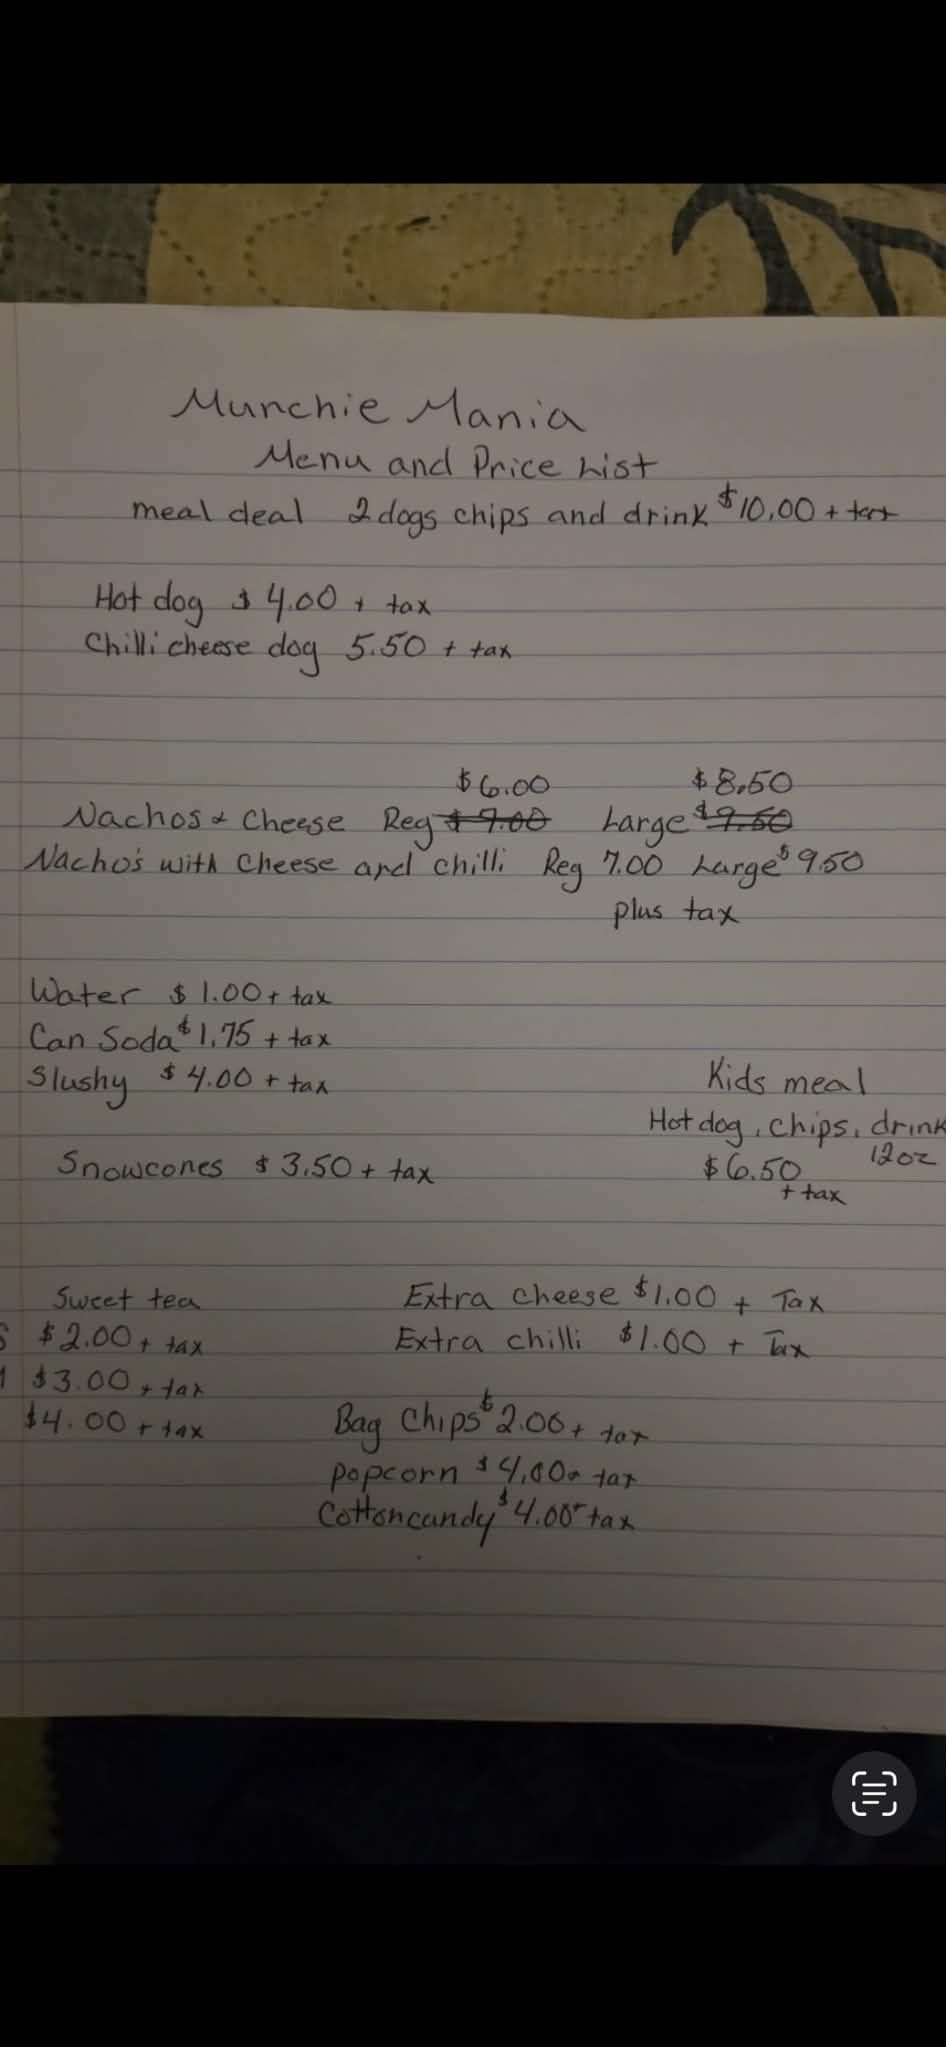 Munchie Mania
Menu and Price List
meal deal 2 dogs chips and drink $10.00 + tax
Hot dog $4.00 + tax
Chilli cheese dog 5.50 + tax
$6.00 $8.50
Nachos & Cheese Reg $7.00 Large $9.50
Nacho's with Cheese and chilli Reg 7.00 Large $9.50
plus tax
Water $1.00 + tax
Can Soda $1.75 + tax
Slushy $4.00 + tax
Snowcones $3.50 + tax
Kids meal
Hot dog, chips, drink
12oz
$6.50
+ tax
Sweet tea
S $2.00 + tax
$3.00 + tax
$4.00 + tax
Extra cheese $1.00 + Tax
Extra chilli $1.00 + Tax
Bag Chips $2.00 + tax
popcorn $4.00 + tax
Cottoncandy $4.00 + tax